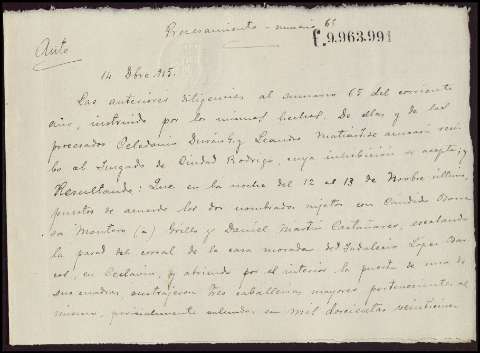 Procesamiento - numero 65
f.9.963.991
Auto
14 Dbre. 915.
Las anteriores diligencias al sumario 65 del corriente
año, instruido por los mismos hechos. De ellas y de los
procesados Celedonio Durán y Leandro Matías se acusará reci
bo al Juzgado de Ciudad Rodrigo, cuya inhibición se acepta; y
Resultando: Que en la noche del 12 al 13 de Novbre último,
puestos de acuerdo los dos nombrados sujetos con Candido
Montero (a) Grillo y Daniel Martin Castañares, escalando
la pared del corral de la casa morada de Indalecio Lopez
en Ceclavin, y abriendo por el interior la puerta de una de
sus cuadras, sustrajeron tres caballerias mayores pertenecientes al
mismo, pericialmente valuadas en mil doscientas veinticinco